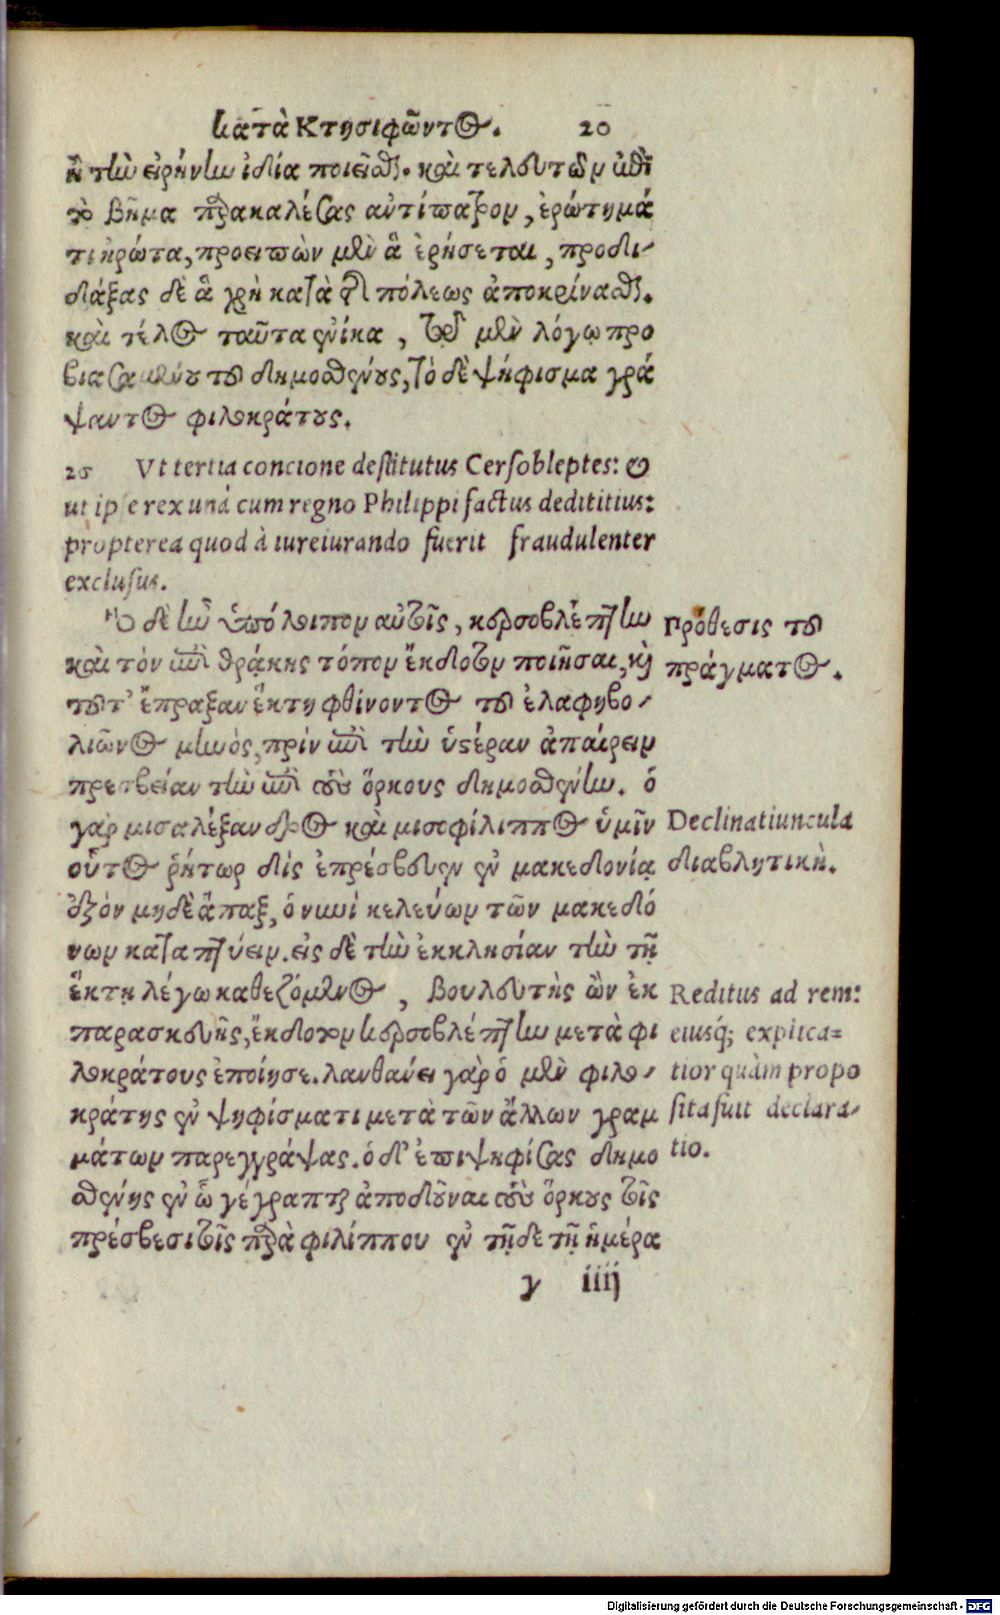 κατὰ Κτησιφῶντος. 20
ἢ τὴν εἰρήνην ἰδία ποιεῖσθαι. καὶ τελευτῶν ἐπὶ
τὸ βῆμα παρακαλέσας ἀντίπατρον, ἐρώτημά
τι ἠρώτα, προειπὼν μὲν ἃ ἐρήσεται, προδι-
δάξας δὲ ἃ χρὴ κατὰ τῆς πόλεως ἀποκρίνασθαι.
καὶ τέλος ταῦτα ἐνίκα, τῷ μὲν λόγῳ προ
βιασαμένου τοῦ δημοσθένους, τὸ δὲ ψήφισμα γρά
ψαντος φιλοκράτους.
26 Vt tertia concione destitutus Cersobleptes: &
ut ipse rex unà cum regno Philippi factus dedititius:
propterea quod à iureiurando fuerit fraudulenter
exclusus.
Ὃ δὲ ἦν ὑπόλοιπον αὐτοῖς, κερσοβλέπτην
καὶ τὸν ἐπὶ θρᾴκης τόπον ἔκδοτον ποιῆσαι, καὶ
τοῦτ' ἔπραξαν ἕκτῃ φθίνοντος τοῦ ἐλαφηβο-
λιῶνος μηνὸς, πρὶν ἐπὶ τὴν ὑστέραν ἀπαίρειν
πρεσβείαν τὴν ἐπὶ τοὺς ὅρκους δημοσθένην. ὁ
γὰρ μισαλέξανδρος καὶ μισοφίλιππος ὑμῖν
οὗτος ῥήτωρ δὶς ἐπρέσβευσεν ἐν μακεδονίᾳ
ἐξὸν μηδὲ ἅπαξ, ὁ νυνὶ κελεύων τῶν μακεδό
νων καταπτύειν. εἰς δὲ τὴν ἐκκλησίαν τὴν τῇ
ἕκτῃ λέγω καθεζόμενος, βουλευτὴς ὢν ἐκ
παρασκευῆς, ἔκδοτον κερσοβλέπτην μετὰ φι
λοκράτους ἐποίησε. λανθάνει γὰρ ὁ μὲν φιλο-
κράτης ἐν ψηφίσματι μετὰ τῶν ἄλλων γραμ
μάτων παρεγγράψας. ὁ δ' ἐπιψηφίσας δημο
σθένης ἐν ᾧ γέγραπται ἀποδοῦναι τοὺς ὅρκους τοῖς
πρέσβεσι τοῖς παρὰ φιλίππου ἐν τῇδε τῇ ἡμέρᾳ
γ iiij
Πρόθεσις τοῦ
πράγματος.
Declinatiuncula
διαβλητικὴ.
Reditus ad rem:
eiusq; explica=
tior quàm propo
sita fuit declara-
tio.
Digitalisierung gefördert durch die Deutsche Forschungsgemeinschaft - DFG